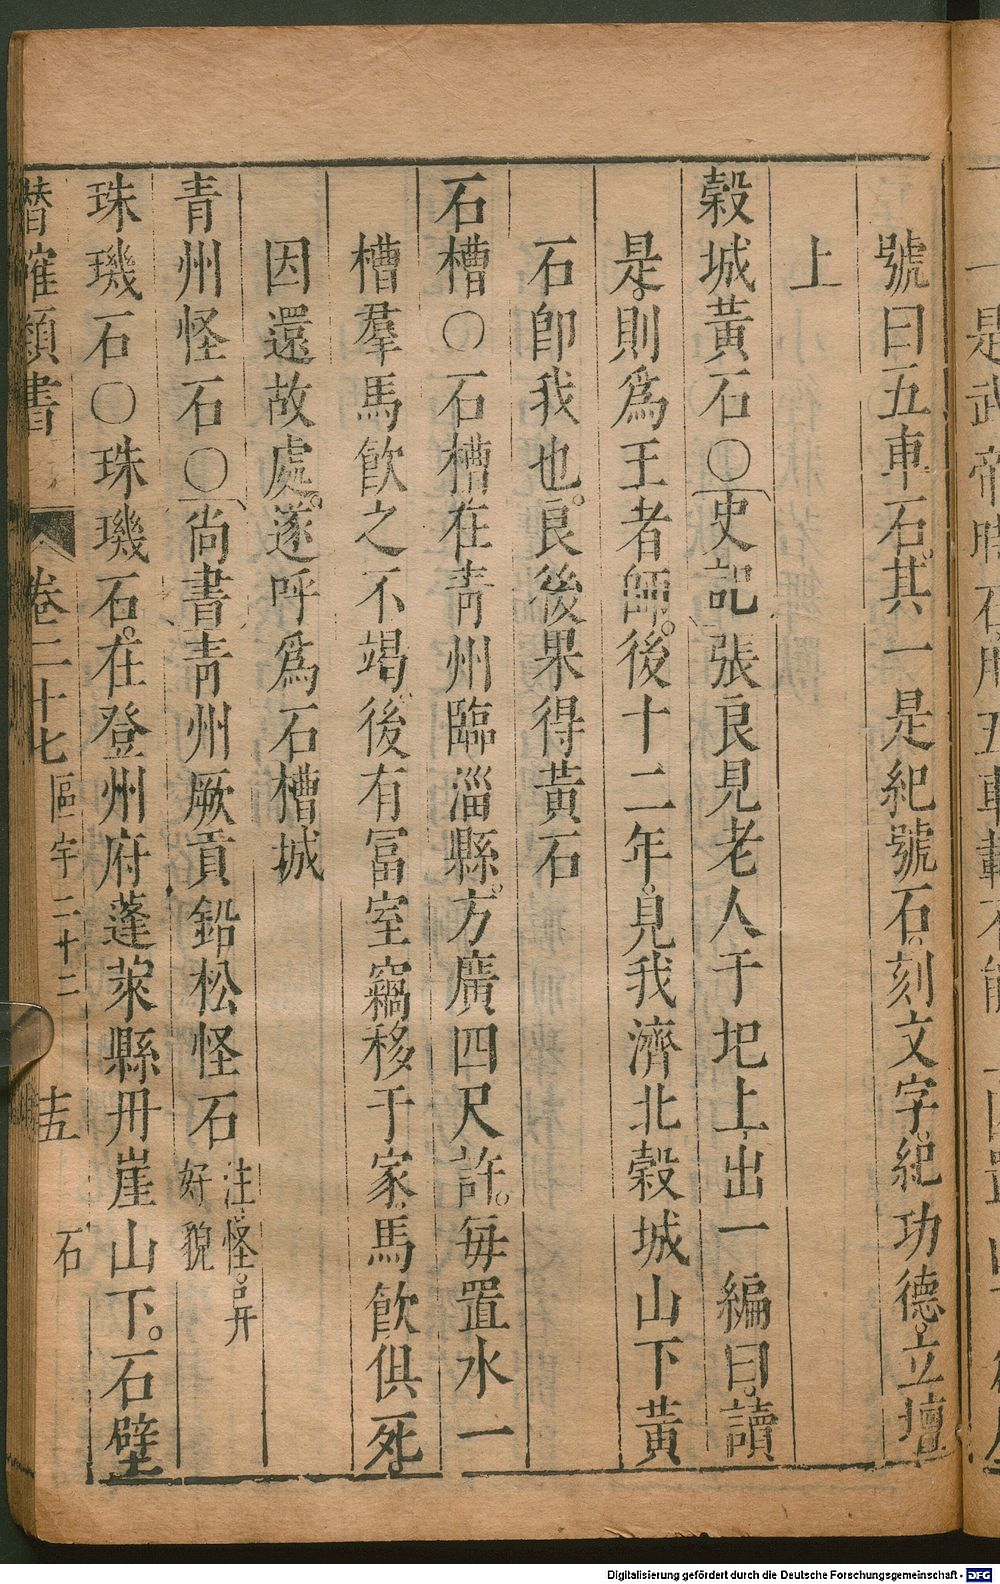 號曰五車石其一是紀號石刻文字紀功德立壇
上
穀城黃石〇史記張良見老人于圯上出一編曰讀
是則爲王者師後十二年見我濟北穀城山下黃
石卽我也良後果得黃石
石槽〇石槽在青州臨淄縣方廣四尺許每置水一
槽羣馬飮之不竭後有冨室竊移于家馬飮俱死
因還故處遂呼爲石槽城
青州怪石〇尚書青州厥貢鉛松怪石
注怪石并
好貌
珠璣石〇珠璣石在登州府蓬萊縣丹崖山下石壁
類書 卷二十七 區宇二十二 十五 石
是武帝時石用五車載不能
Digitalisierung gefördert durch die Deutsche Forschungsgemeinschaft - DFG